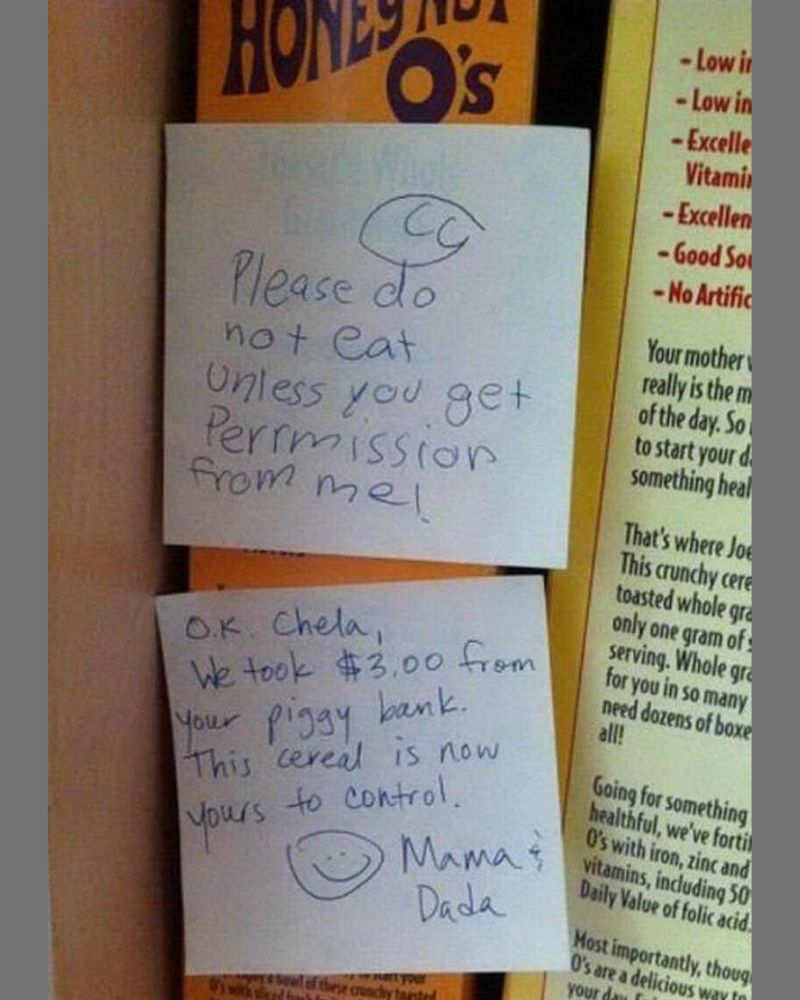 HONEY NUT
O's
CC
Please do
not eat
Unless you get
Perrmission
from me!
O.K. Chela,
We took $3.00 from
your piggy bank.
This cereal is now
yours to control.
Mama &
Dada
- Low
- Low
- Excelle
Vitami
- Excellen
- Good
- No Artific
Your mother
really is the
of the day. So
to start your
something heal
That's where Joe
This crunchy cere
toasted whole gra
only one gram of
serving. Whole gra
for you in so many
need dozens of boxe
all!
Going for something
healthful, we've fortif
O's with iron, zinc and
vitamins, including 50
Daily Value of folic acid.
Most importantly, thoug
O's are a delicious way to
your
a bowl of these crunchy toasted